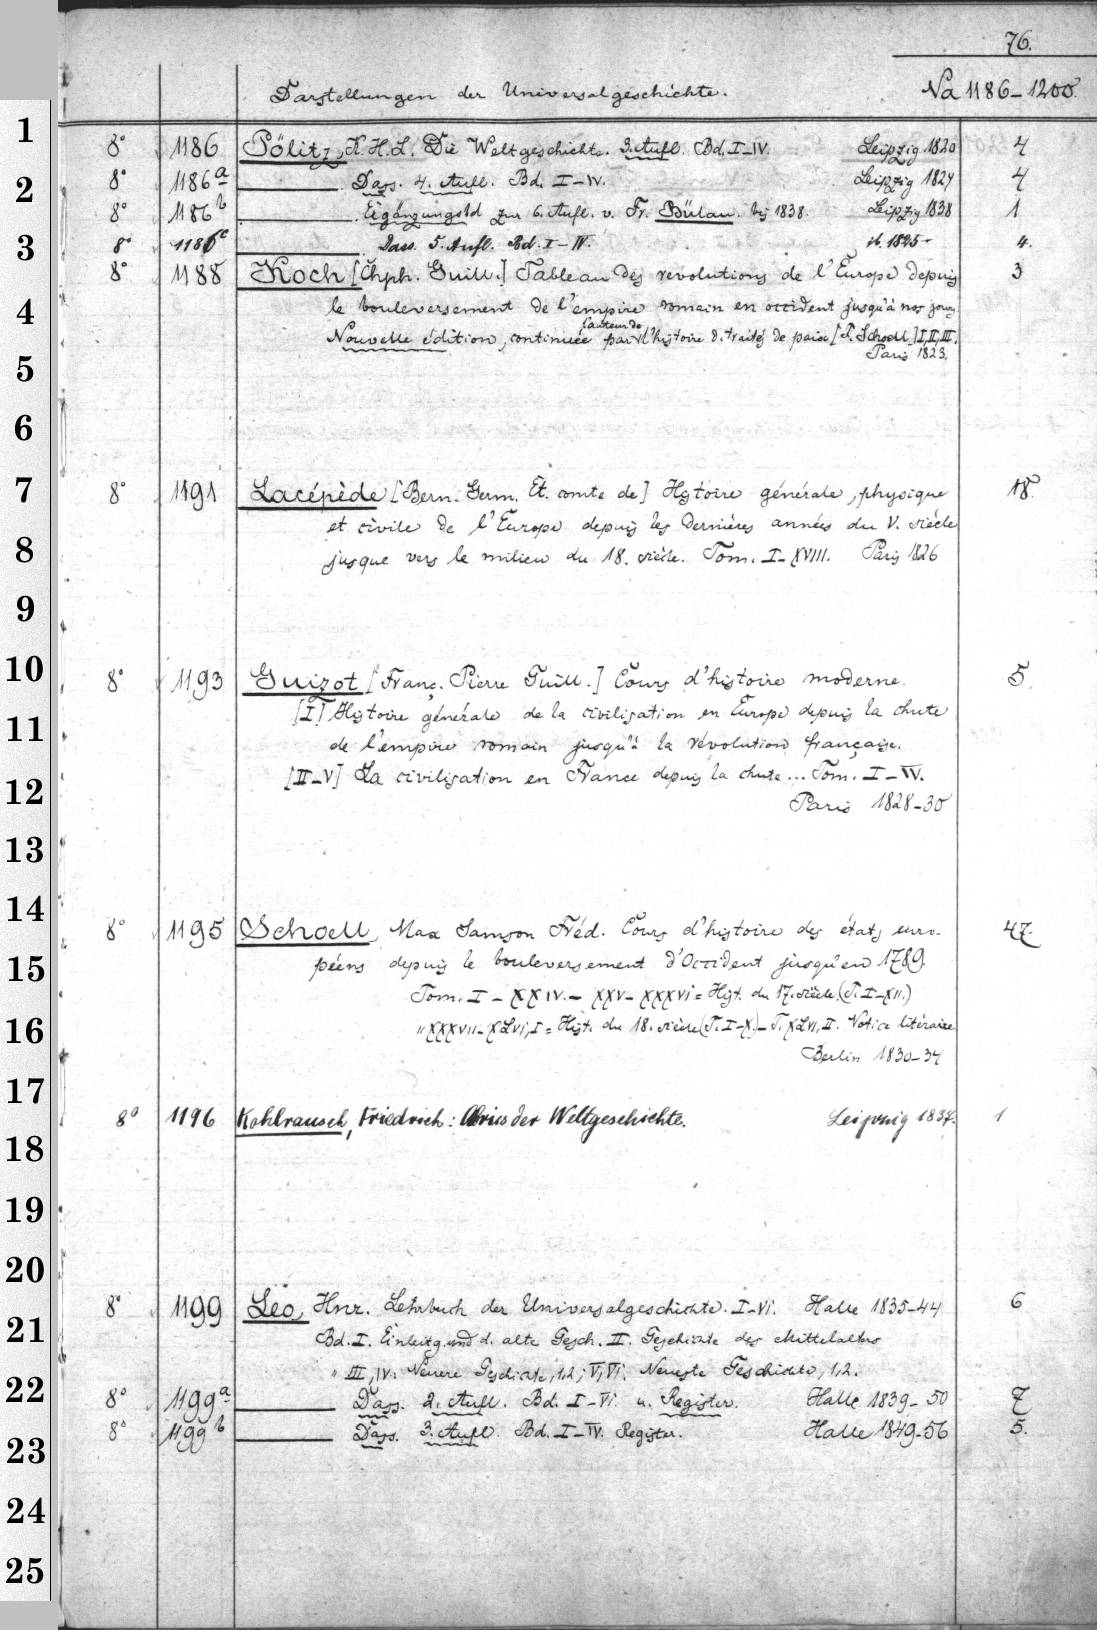 76.
Darstellungen der Universalgeschichte. Na 1186-1200.
1
8° 1186 Pölitz, K. H. L. Die Weltgeschichte. 3. Aufl. Bd. I-IV. Leipzig 1820 4
2
8° 1186a Dass. 4. Aufl. Bd. I-IV. Leipzig 1824 4
8° 1186b Ergänzungsbd zur 6. Aufl. v. Fr. Bülau. bis 1838. Leipzig 1838 1
3
8° 1186c Dass. 5. Aufl. Bd. I-IV. ib. 1825 4.
8° 1188 Koch [Chph. Guill.] Tableau des revolutions de l'Europe depuis 3
4
le bouleversement de l'empire romain en occident jusqu'à nos jours
Nouvelle édition, continuée par l'auteur de l'histoire d. traités de paix [F. Schoell] I, II, III.
5
Paris 1823.
6
7
8° 1191 Lacépède [Bern. Germ. Ét. comte de] Histoire générale, physique 18.
et civile de l'Europe depuis les dernières années du V. siècle
8
jusque vers le milieu du 18. siècle. Tom. I-XVIII. Paris 1826
9
10
8° 1193 Guizot [Franç. Pierre Guill.] Cours d'histoire moderne. 5.
11
[I] Histoire générale de la civilisation en Europe depuis la chute
de l'empire romain jusqu'à la révolution française.
[II-V] La civilisation en France depuis la chute... Tom. I-IV.
12
Paris 1828-30
13
14
8° 1195 Schoell, Max Samson Fréd. Cours d'histoire des états euro- 47.
15
péens depuis le bouleversement d'Occident jusqu'en 1789.
Tom. I-XXIV.- XXV-XXXVI = Hist. du 17. siècle. (T. I-XII.)
16
" XXXVII-XLVI, I = Hist. du 18. siècle (T. I-X)- T. XLVI, II. Notice litéraire
Berlin 1830-34
17
8° 1196 Kohlrausch, Friedrich: Abriss der Weltgeschichte. Leipzig 1837. 1
18
19
20
8° 1199 Leo, Hnr. Lehrbuch der Universalgeschichte. I-VI. Halle 1835-44 6
21
Bd. I. Einleitg. und d. alte Gesch. II. Geschichte des Mittelalters
" III, IV. Neuere Geschichte, 1,2; V, VI. Neueste Geschichte, 1,2.
22
8° 1199a Dass. 2. Aufl. Bd. I-VI u. Register. Halle 1839-50 7
8° 1199b Dass. 3. Aufl. Bd. I-IV. Register. Halle 1849-56 5.
23
24
25